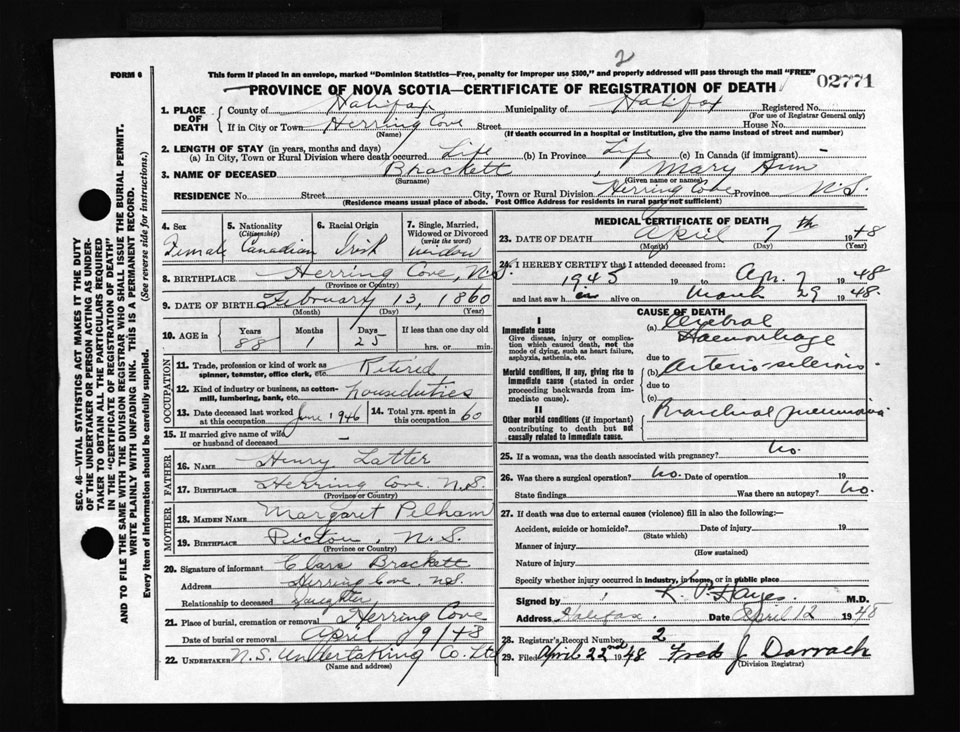 2
FORM 6
This form if placed in an envelope, marked "Dominion Statistics—Free, penalty for improper use $300," and properly addressed will pass through the mail "FREE"
PROVINCE OF NOVA SCOTIA—CERTIFICATE OF REGISTRATION OF DEATH
02771
1. PLACE OF DEATH
County of Halifax Municipality of Halifax Registered No.
(For use of Registrar General only)
If in City or Town Herring Cove Street House No.
(Name) (If death occurred in a hospital or institution, give the name instead of street and number)
2. LENGTH OF STAY (in years, months and days)
(a) In City, Town or Rural Division where death occurred Life (b) In Province Life (c) In Canada (if immigrant) —
3. NAME OF DECEASED Brackett , Mary Ann
(Surname) (Given name or names)
RESIDENCE No. Street City, Town or Rural Division Herring Cove Province N.S.
(Residence means usual place of abode. Post Office Address for residents in rural parts not sufficient)
4. Sex 5. Nationality (Citizenship) 6. Racial Origin 7. Single, Married, Widowed or Divorced (write the word)
Female Canadian Irish widow
8. BIRTHPLACE Herring Cove, N.S.
(Province or Country)
9. DATE OF BIRTH February 13, 1860
(Month) (Day) (Year)
10. AGE in Years Months Days If less than one day old
88 1 25 hrs. or min.
OCCUPATION
11. Trade, profession or kind of work as spinner, teamster, office clerk, etc. Retired
12. Kind of industry or business, as cotton-mill, lumbering, bank, etc. housduties
13. Date deceased last worked at this occupation June 1946 14. Total yrs. spent in this occupation 60
15. If married give name of wife or husband of deceased —
FATHER
16. NAME Henry Latter
17. BIRTHPLACE Herring Cove N.S.
(Province or Country)
MOTHER
18. MAIDEN NAME Margaret Pelham
19. BIRTHPLACE Pictou, N.S.
(Province or Country)
20. Signature of informant Clara Brackett
Address Herring Cove N.S.
Relationship to deceased daughter
21. Place of burial, cremation or removal Herring Cove
Date of burial or removal April 9/48
22. UNDERTAKER N.S. Undertaking Co. Ltd
(Name and address)
MEDICAL CERTIFICATE OF DEATH
23. DATE OF DEATH April 7th 1948
(Month) (Day) (Year)
24. I HEREBY CERTIFY that I attended deceased from:
1945 19 to Apr. 7 1948
and last saw h er alive on March 29 1948.
CAUSE OF DEATH
I
Immediate cause
Give disease, injury or complication which caused death, not the mode of dying, such as heart failure, asphyxia, asthenia, etc.
(a) Cerebral Haemorrhage
due to
Morbid conditions, if any, giving rise to immediate cause (stated in order proceeding backwards from immediate cause).
(b) Arterio-sclerosis
due to
(c)
II
Other morbid conditions (if important) contributing to death but not causally related to immediate cause.
Bronchial pneumonia
25. If a woman, was the death associated with pregnancy? no.
26. Was there a surgical operation? no. Date of operation 19
State findings Was there an autopsy? no.
27. If death was due to external causes (violence) fill in also the following:—
Accident, suicide or homicide? Date of injury 19
(State which)
Manner of injury
(How sustained)
Nature of injury
Specify whether injury occurred in industry, in home, or in public place
Signed by K. P. Hayes M.D.
Address Halifax Date April 12 1948
28. Registrar's Record Number 2
29. Filed April 22nd 1948 Fred J. Darrach
(Division Registrar)
SEC. 46—VITAL STATISTICS ACT MAKES IT THE DUTY
OF THE UNDERTAKER OR PERSON ACTING AS UNDER-
TAKER TO OBTAIN ALL THE PARTICULARS REQUIRED
IN THE "CERTIFICATE OF REGISTRATION OF DEATH"
AND TO FILE THE SAME WITH THE DIVISION REGISTRAR WHO SHALL ISSUE THE BURIAL PERMIT.
WRITE PLAINLY WITH UNFADING INK. THIS IS A PERMANENT RECORD.
Every item of information should be carefully supplied. (See reverse side for instructions.)